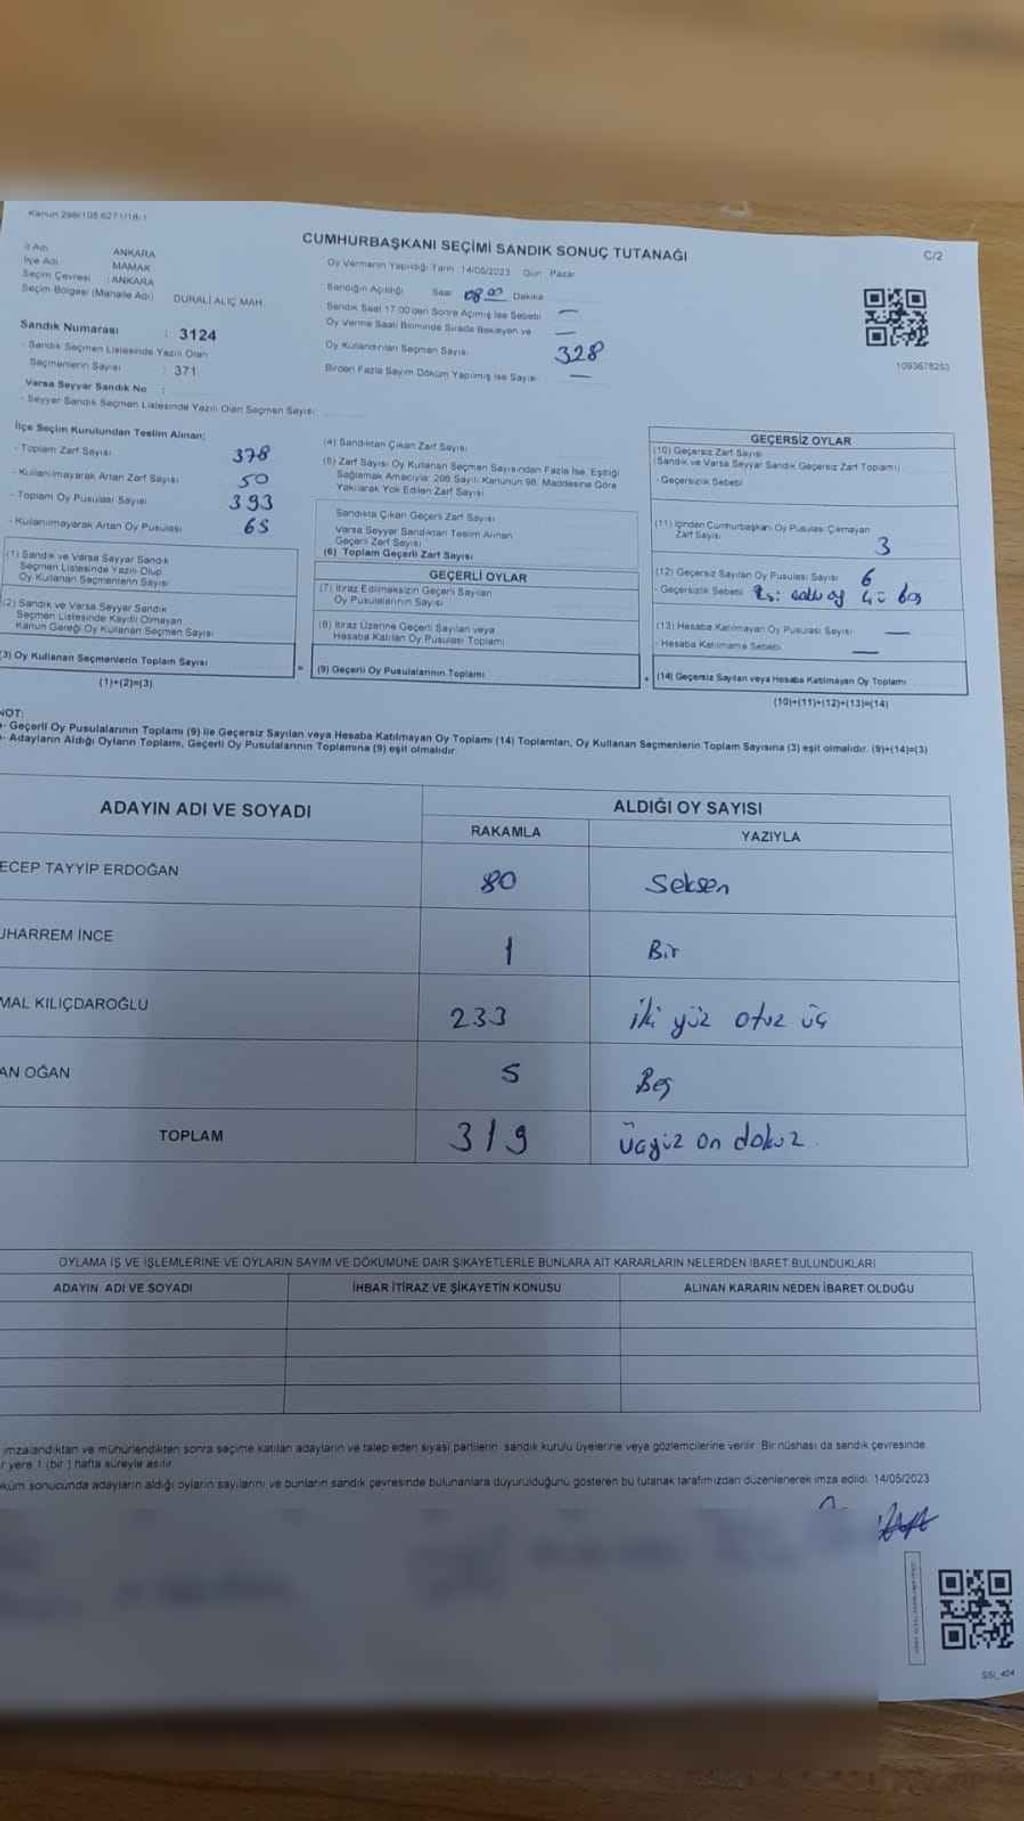 Kanun 298/105
CUMHURBAŞKANI SEÇİMİ SANDIK SONUÇ TUTANAĞI
C/2
İl Adı ANKARA
İlçe Adı MAMAK
Seçim Çevresi : ANKARA
Seçim Bölgesi (Mahalle Adı) DURALİ ALIÇ MAH.
Oy Vermenin Yapıldığı Tarih : 14/05/2023 Gün : Pazar
Sandığın Açıldığı Saat 08 00 Dakika
Sandık Saat 17:00'den Sonra Açılmış İse Sebebi —
Oy Verme Saati Bitiminde Sırada Bekleyen ve —
Oy Kullandırılan Seçmen Sayısı 328
Birden Fazla Sayım Döküm Yapılmış İse Sayısı —
1093678253
Sandık Numarası : 3124
- Sandık Seçmen Listesinde Yazılı Olan
Seçmenlerin Sayısı : 371
Varsa Seyyar Sandık No :
- Seyyar Sandık Seçmen Listesinde Yazılı Olan Seçmen Sayısı:
İlçe Seçim Kurulundan Teslim Alınan;
- Toplam Zarf Sayısı 378
- Kullanılmayarak Artan Zarf Sayısı 50
- Toplam Oy Pusulası Sayısı 393
- Kullanılmayarak Artan Oy Pusulası 65
(1) Sandık ve Varsa Seyyar Sandık
Seçmen Listesinde Yazılı Olup
Oy Kullanan Seçmenlerin Sayısı
(2) Sandık ve Varsa Seyyar Sandık
Seçmen Listesinde Kayıtlı Olmayan
Kanun Gereği Oy Kullanan Seçmen Sayısı
(3) Oy Kullanan Seçmenlerin Toplam Sayısı
(1)+(2)=(3)
(4) Sandıktan Çıkan Zarf Sayısı
(5) Zarf Sayısı Oy Kullanan Seçmen Sayısından Fazla İse, Eşitliği
Sağlamak Amacıyla; 298 Sayılı Kanunun 98. Maddesine Göre
Yakılarak Yok Edilen Zarf Sayısı
Sandıkta Çıkan Geçerli Zarf Sayısı
Varsa Seyyar Sandıktan Teslim Alınan
Geçerli Zarf Sayısı
(6) Toplam Geçerli Zarf Sayısı
GEÇERLİ OYLAR
(7) İtiraz Edilmeksizin Geçerli Sayılan
Oy Pusulalarının Sayısı
(8) İtiraz Üzerine Geçerli Sayılan veya
Hesaba Katılan Oy Pusulası Toplamı
= (9) Geçerli Oy Pusulalarının Toplamı
GEÇERSİZ OYLAR
(10) Geçersiz Zarf Sayısı
(Sandık ve Varsa Seyyar Sandık Geçersiz Zarf Toplamı)
- Geçersizlik Sebebi
(11) İçinden Cumhurbaşkanı Oy Pusulası Çıkmayan
Zarf Sayısı 3
(12) Geçersiz Sayılan Oy Pusulası Sayısı 6
- Geçersizlik Sebebi
(13) Hesaba Katılmayan Oy Pusulası Sayısı —
- Hesaba Katılmama Sebebi —
+ (14) Geçersiz Sayılan veya Hesaba Katılmayan Oy Toplamı
(10)+(11)+(12)+(13)=(14)
NOT:
- Geçerli Oy Pusulalarının Toplamı (9) ile Geçersiz Sayılan veya Hesaba Katılmayan Oy Toplamı (14) Toplamları, Oy Kullanan Seçmenlerin Toplam Sayısına (3) eşit olmalıdır. (9)+(14)=(3)
- Adayların Aldığı Oyların Toplamı, Geçerli Oy Pusulalarının Toplamına (9) eşit olmalıdır.
ADAYIN ADI VE SOYADI
ALDIĞI OY SAYISI
RAKAMLA YAZIYLA
ECEP TAYYİP ERDOĞAN 80 Seksen
UHARREM İNCE 1 Bir
MAL KILIÇDAROĞLU 233 iki yüz otuz üç
AN OĞAN 5 Beş
TOPLAM 319 üçyüz on dokuz.
OYLAMA İŞ VE İŞLEMLERİNE VE OYLARIN SAYIM VE DÖKÜMÜNE DAİR ŞİKAYETLERLE BUNLARA AİT KARARLARIN NELERDEN İBARET BULUNDUKLARI
ADAYIN ADI VE SOYADI İHBAR İTİRAZ VE ŞİKAYETİN KONUSU ALINAN KARARIN NEDEN İBARET OLDUĞU
imzalandıktan ve mühürlendikten sonra seçime katılan adayların ve talep eden siyasi partilerin sandık kurulu üyelerine veya gözlemcilerine verilir. Bir nüshası da sandık çevresinde
r yere 1 (bir) hafta süreyle asılır.
küm sonucunda adayların aldığı oyların sayılarını ve bunların sandık çevresinde bulunanlara duyurulduğunu gösteren bu tutanak tarafımızdan düzenlenerek imza edildi. 14/05/2023
SSI_404